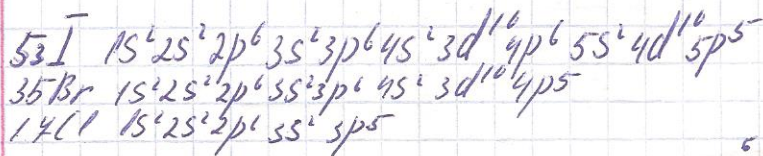 53I 1s²2s²2p⁶3s²3p⁶4s²3d¹⁰4p⁶5s²4d¹⁰5p⁵
35Br 1s²2s²2p⁶3s²3p⁶4s²3d¹⁰4p5
17Cl 1s²2s²2p⁶3s²3p5